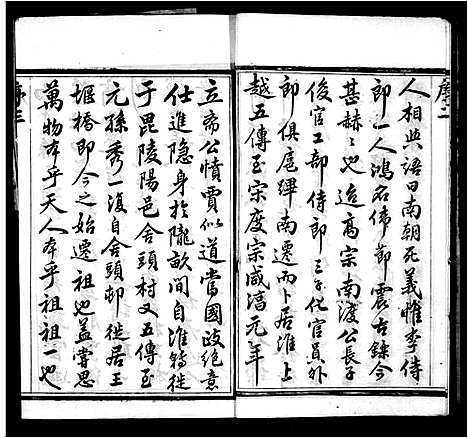 序二
人相與語曰南朝死義惟李侍
郎一人鴻名偉節震古鑠今
甚赫赫也迨高宗南渡公長子
俊官工部侍郎三子化官員外
郎俱扈蹕南遷而卜居淮上
越五傳至宋度宗咸淳元年
立斋公憤賈似道當國政絶意
仕進隐身於隴畝間自淮徙
于毘陵陽邑舍頭村又五傳至
元孫秀一復自舍頭邨徙居王
堰橋即今之始遷祖也蓋嘗思
萬物本乎天人本乎祖祖一也
序三